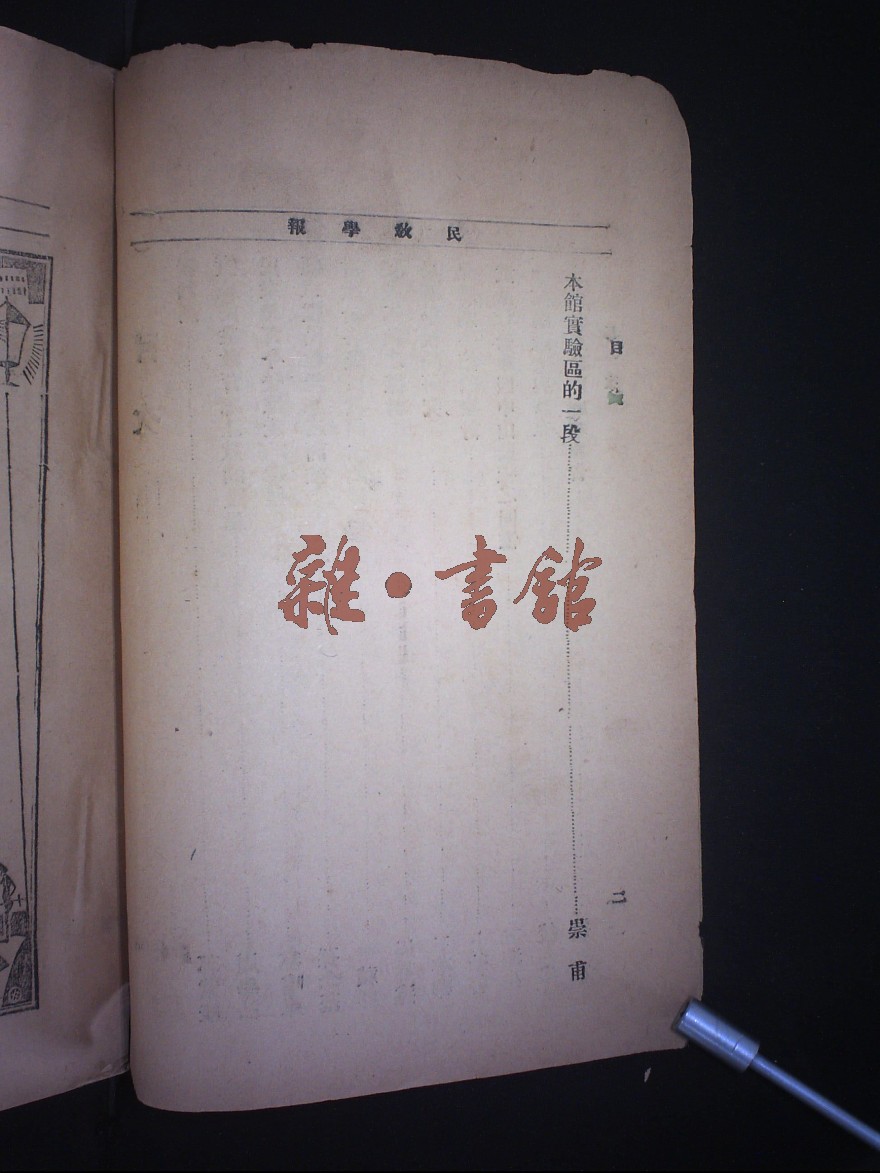 民教學報
目錄
二
本館實驗區的一段……………………………………崇甫
雜·書館